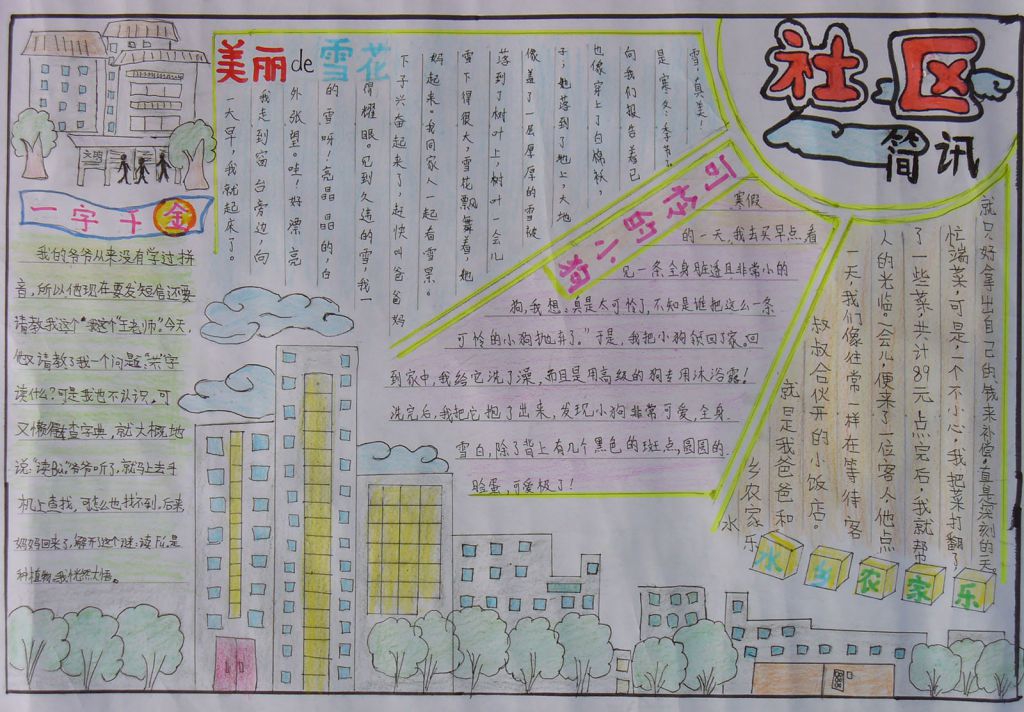 社区
简讯
美丽de雪花
一天早,我就起床了。
我走到窗台旁边,向
外张望。哇!好漂亮
的雪呀!亮晶晶的,白
得耀眼。见到久违的雪,我一
下子兴奋起来了,赶快叫爸爸妈
妈起来,我同家人一起看雪景。
雪下得很大,雪花飘舞着,她
落到了树叶上,树叶一会儿
像盖了一层厚厚的雪被
子;她落到了地上,大地
也像穿上了白棉袄,
向我们报告着已
是寒冬季节了
雪真美!
一字千金
我的爷爷从来没有学过拼
音,所以他现在要发短信还要
请教我这个"王老师"。今天,
他又请教了我一个问题:字
读什么?可是我也不认识。可
又懒得去查字典,就大概地
说:"读"。爷爷听了,就马上去手
机上查找,可怎么也找不到。后来,
妈妈回来了,解开这个谜:读,是一
种植物。我恍然大悟。
可怜的小狗
寒假
的一天,我去买早点,看
见一条全身脏透且非常小的
狗,我想:"真是太可怜了,不知是谁把这么一条
可怜的小狗抛弃了。"于是,我把小狗领回了家。回
到家中,我给它洗了澡,而且是用高级的狗专用沐浴露!
洗完后,我把它抱了出来,发现小狗非常可爱,全身
雪白,除了背上有几个黑色的斑点,圆圆的
脸蛋,可爱极了!
水乡农家乐
水乡农家乐
就是我爸爸和
叔叔合伙开的小饭店。
一天,我们像往常一样在等待客
人的光临。一会儿,便来了一位客人,他点
了一些菜共计89元,点完后,我就帮
忙端菜,可是,一个不小心,我把菜打翻了
就只好拿出自己的钱来补偿,真是深刻的一天